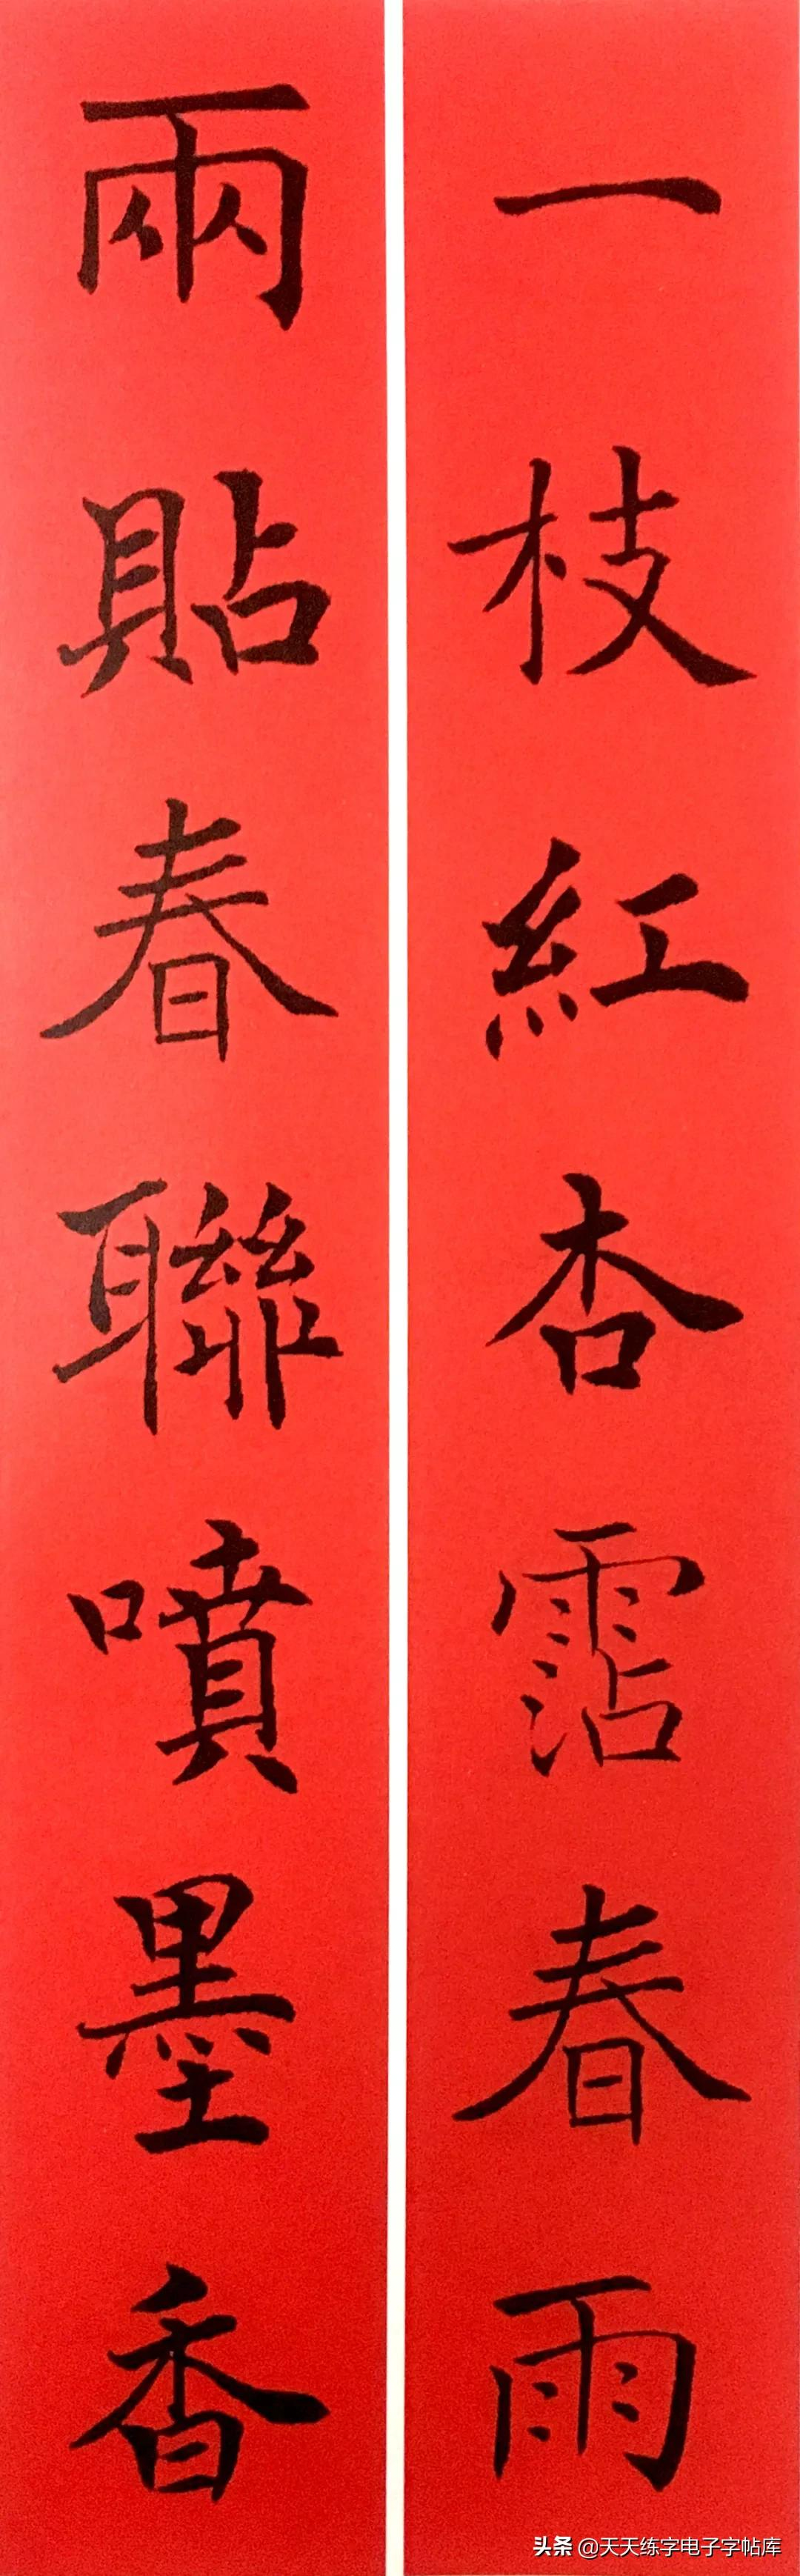 一枝紅杏霑春雨
兩貼春聯噴墨香
头条 @天天练字电子字帖库